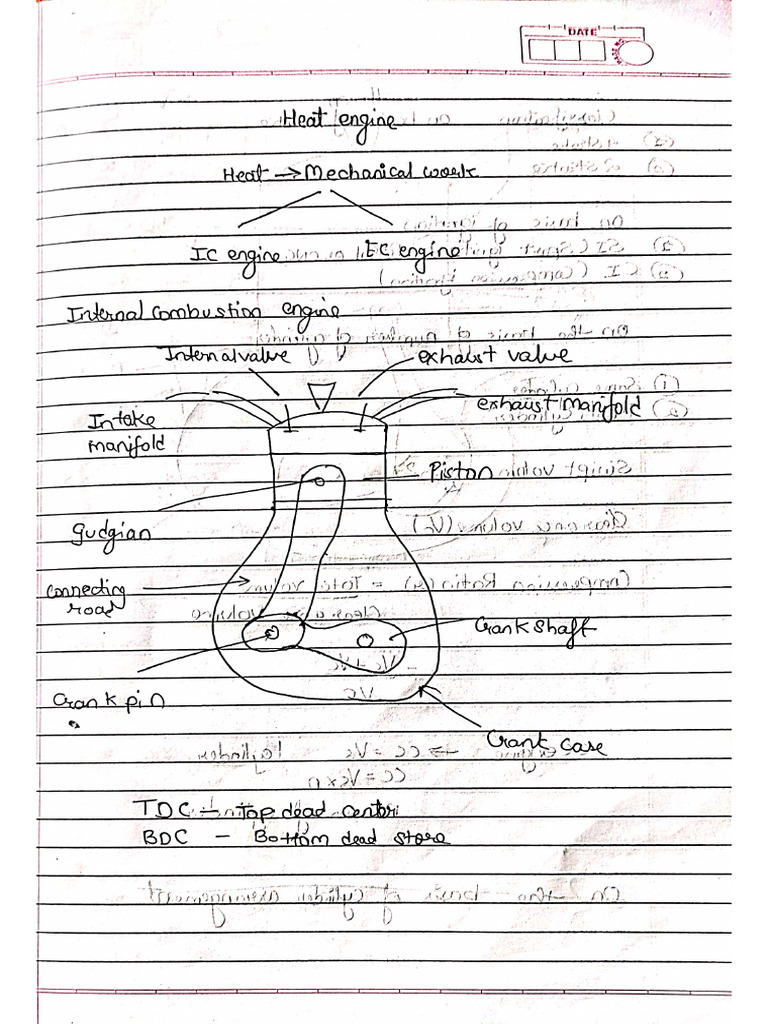 DATE
Heat engine
Heat → Mechanical work
IC engine EC engine
Internal combustion engine
Internal valve exhaust valve
Intake manifold
exhaust manifold
Piston
gudgian
connecting road
Crank shaft
Crank pin
Crank case
TDC – Top dead center
BDC – Bottom dead store